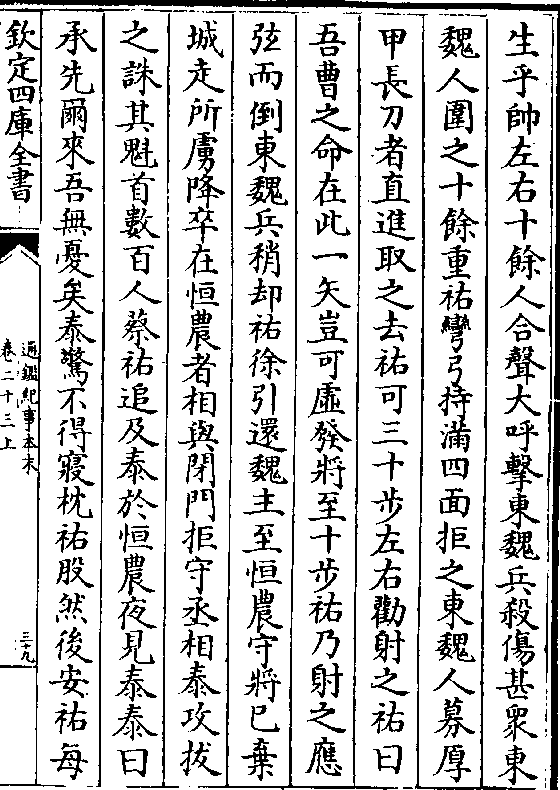 生乎帥左右十餘人合聲大呼擊東魏兵殺傷甚衆東
魏人圍之十餘重祐彎弓持滿四面拒之東魏人募厚
甲長刀者直進取之去祐可三十步左右勸射之祐曰
吾曹之命在此一矢豈可虛發將至十步祐乃射之應
弦而倒東魏兵稍却祐徐引還魏主至恒農守將已棄
城走所虜降卒在恒農者相與閉門拒守丞相泰攻拔
之誅其魁首數百人蔡祐追及泰於恒農夜見泰泰曰
承先爾來吾無憂矣泰驚不得寢枕祐股然後安祐每
欽定四庫全書
通鑑紀事本末
卷二十三上
三十九